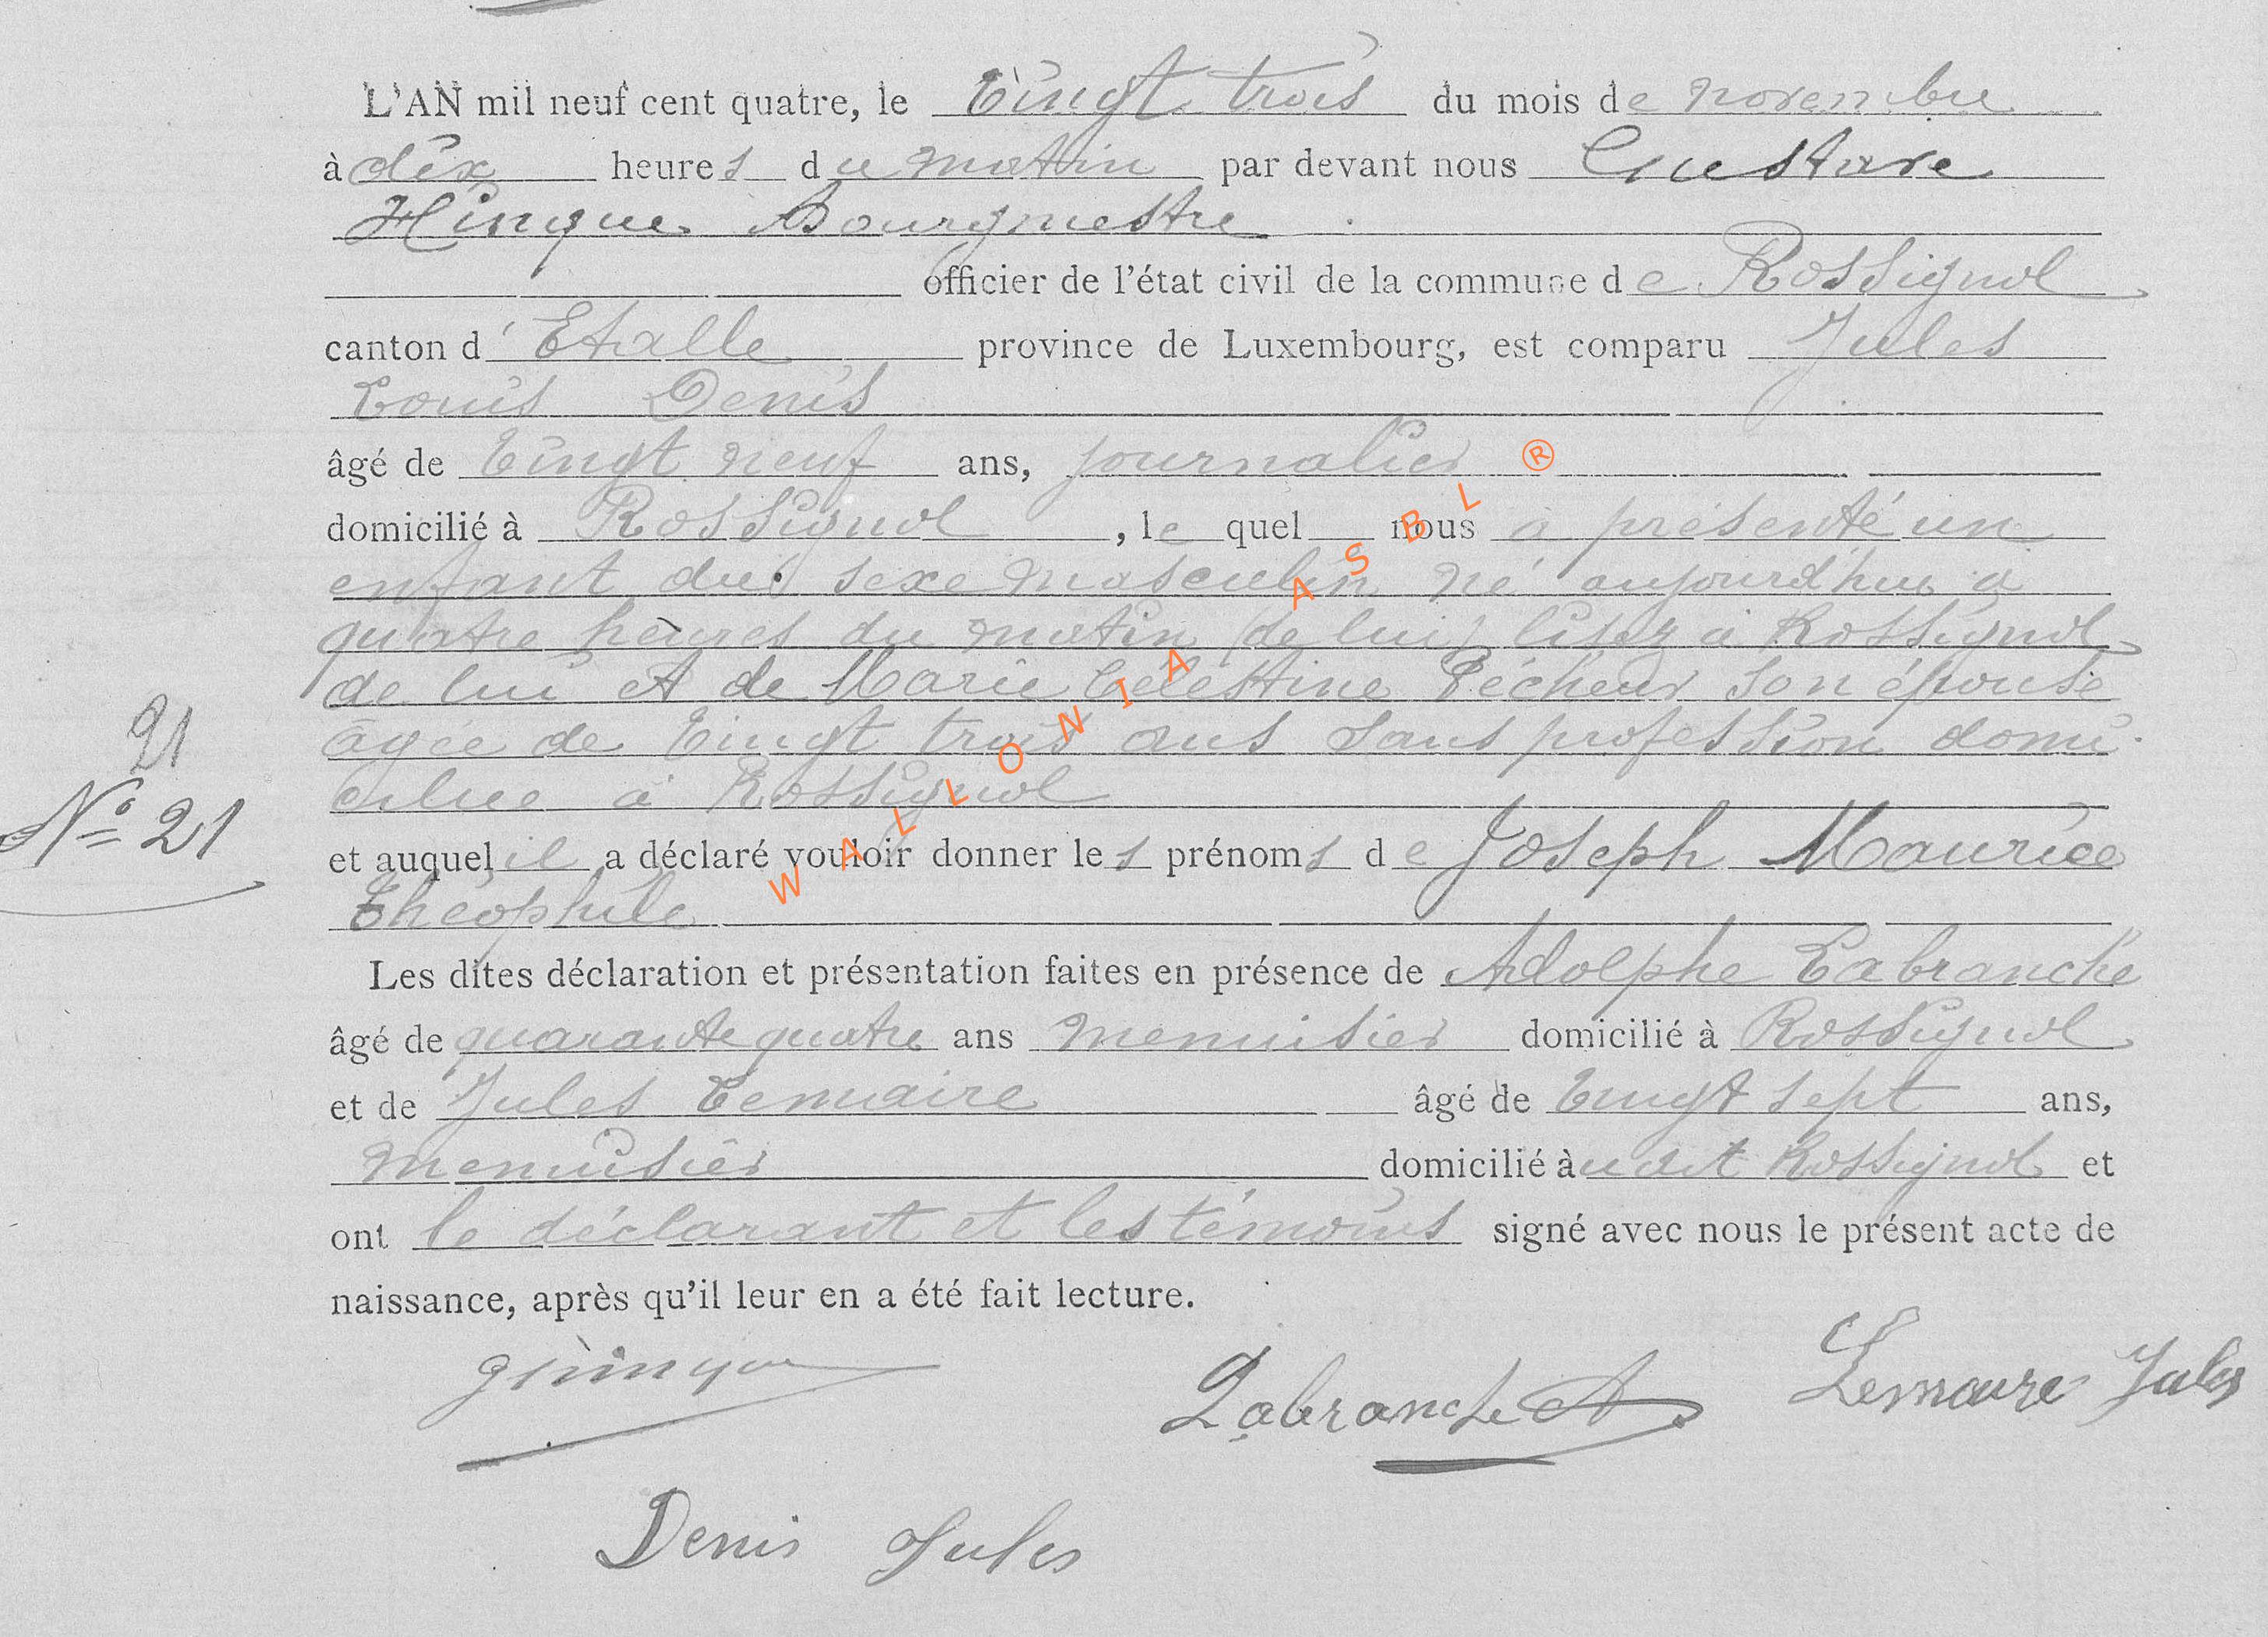 L'AN mil neuf cent quatre, le Vingt trois du mois de novembre
à dix heures du matin par devant nous Gustave
Hinque Bourgmestre
officier de l'état civil de la commune de Rossignol
canton d'Etalle province de Luxembourg, est comparu Jules
Louis Denis
âgé de Vingt neuf ans, journalier
domicilié à Rossignol, le quel nous a présenté un
enfant du sexe masculin né aujourd'hui à
quatre heures du matin (de lui) lisez à Rossignol
de lui et de Marie Célestine Pécheur son épouse
âgée de Vingt trois ans sans profession domi
ciliée à Rossignol
21
No 21
et auquel il a déclaré vouloir donner les prénoms de Joseph Maurice
Théophile
Les dites déclaration et présentation faites en présence de Adolphe Labranche
âgé de quarante quatre ans menuisier domicilié à Rossignol
et de Jules Lemaire âgé de Vingt sept ans,
menuisier domicilié àu dit Rossignol et
ont le déclarant et les témoins signé avec nous le présent acte de
naissance, après qu'il leur en a été fait lecture.
GHinque
Labranche A
Lemaire Jules
Denis Jules
WALLONIA ASBL ®